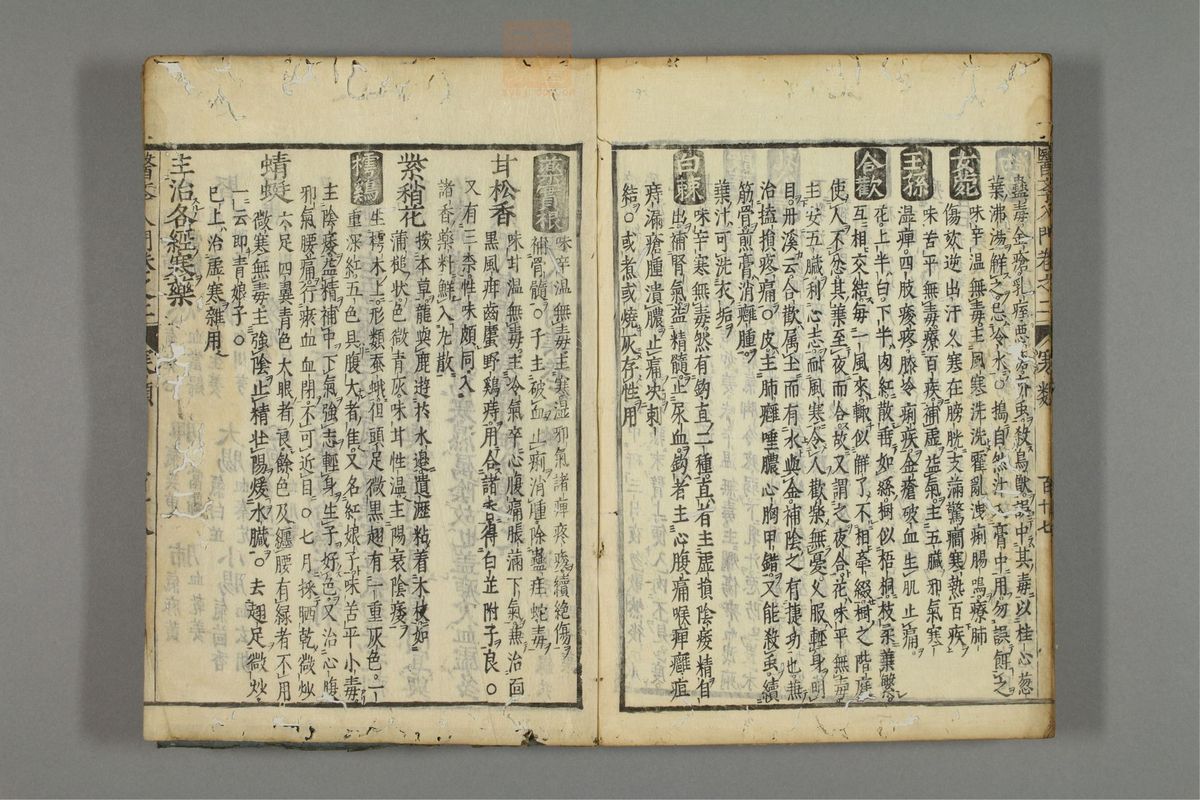 蠱毒金瘡乳痓惡瘡疥虫殺鳥獸中其毒以桂心葱
葉沸湯解之忌冷水○搗自然汁入膏中用勿誤餌之
女菀
味辛温無毒主風寒洗洗霍亂洩痢腸鳴療肺
傷欬逆出汗久寒在膀胱支滿驚癇寒熱百疾
王孫
味苦平無毒療百疾補虚益氣主五臟邪氣寒
温痺四肢痠疼膝冷痢疾金瘡破血生肌止痛
合歡
花上半白下半肉紅散垂如絲樹似梧桐枝柔葉繁
互相交結毎一風來輙似解了不相牽綴樹之階庭
使人不忿其葉至夜而合故又謂之夜合花味平無毒
主安五臟利心志耐風寒令人歡樂無憂久服輕身明
目丹溪云合歡属土而有水與金補陰之有捷功也兼
治損疼痛○皮主肺癰唾膿心胸甲錯又能殺虫續
筋骨煎膏消癰腫
葉汁可洗衣垢
白棘
味辛寒無毒然有鈎直二種直者主虚損陰痿精自
出補腎氣益精髓止尿血鈎者主心腹痛喉痺癰疽
痔漏瘡腫潰膿止痛决刺
結○或煮或燒灰存性用
醫學入門卷之二
寒類
百十七
味辛温無毒主寒湿邪氣諸痺疼痠續絶傷
補骨髓○子主破血止痢消腫除蠱疰蛇毒
甘松香
味甘温無毒主冷氣卒心腹痛脹滿下氣兼治面
黒風疳齒䘌野鷄痔用合諸香得白芷附子良○
又有三柰性味頗同入
諸香藥料鮮入丸散
紫稍花
按本草龍與鹿遊於水邉遺瀝粘着木枝如
蒲槌狀色微青灰味甘性温主陽衰陰痿
樗鷄
生樗木上形類蚕蛾但頭足微黒翅有一重灰色一
重深紅五色具腹大者佳又名紅娘子味苦平小毒
主陰痿益精補中下氣強志輕身生子好色又治心腹
邪氣腰痛行瘀血血閉不可近目○七月採晒乾微炒
蜻蜓
六足四翼青色大眼者良餘色及纏腰有緑者不用
微寒無毒主強陰止精壮陽煖水臓○去翅足微炒
一云即青娘子○
已上治虚寒雜用
主治各經寒藥